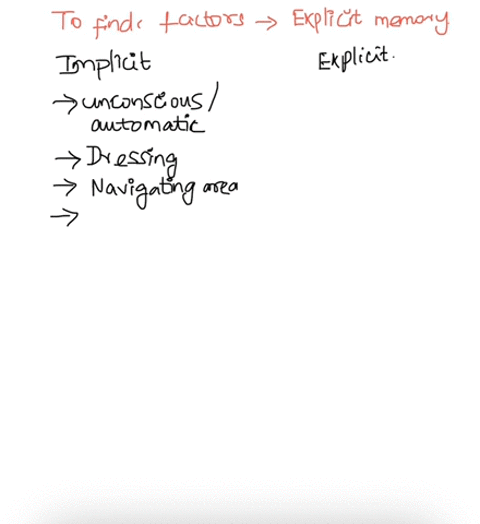 To find: factors → Explicit memory
Implicit
Explicit.
→ unconscious /
automatic
→ Dressing
→ Navigating area
→